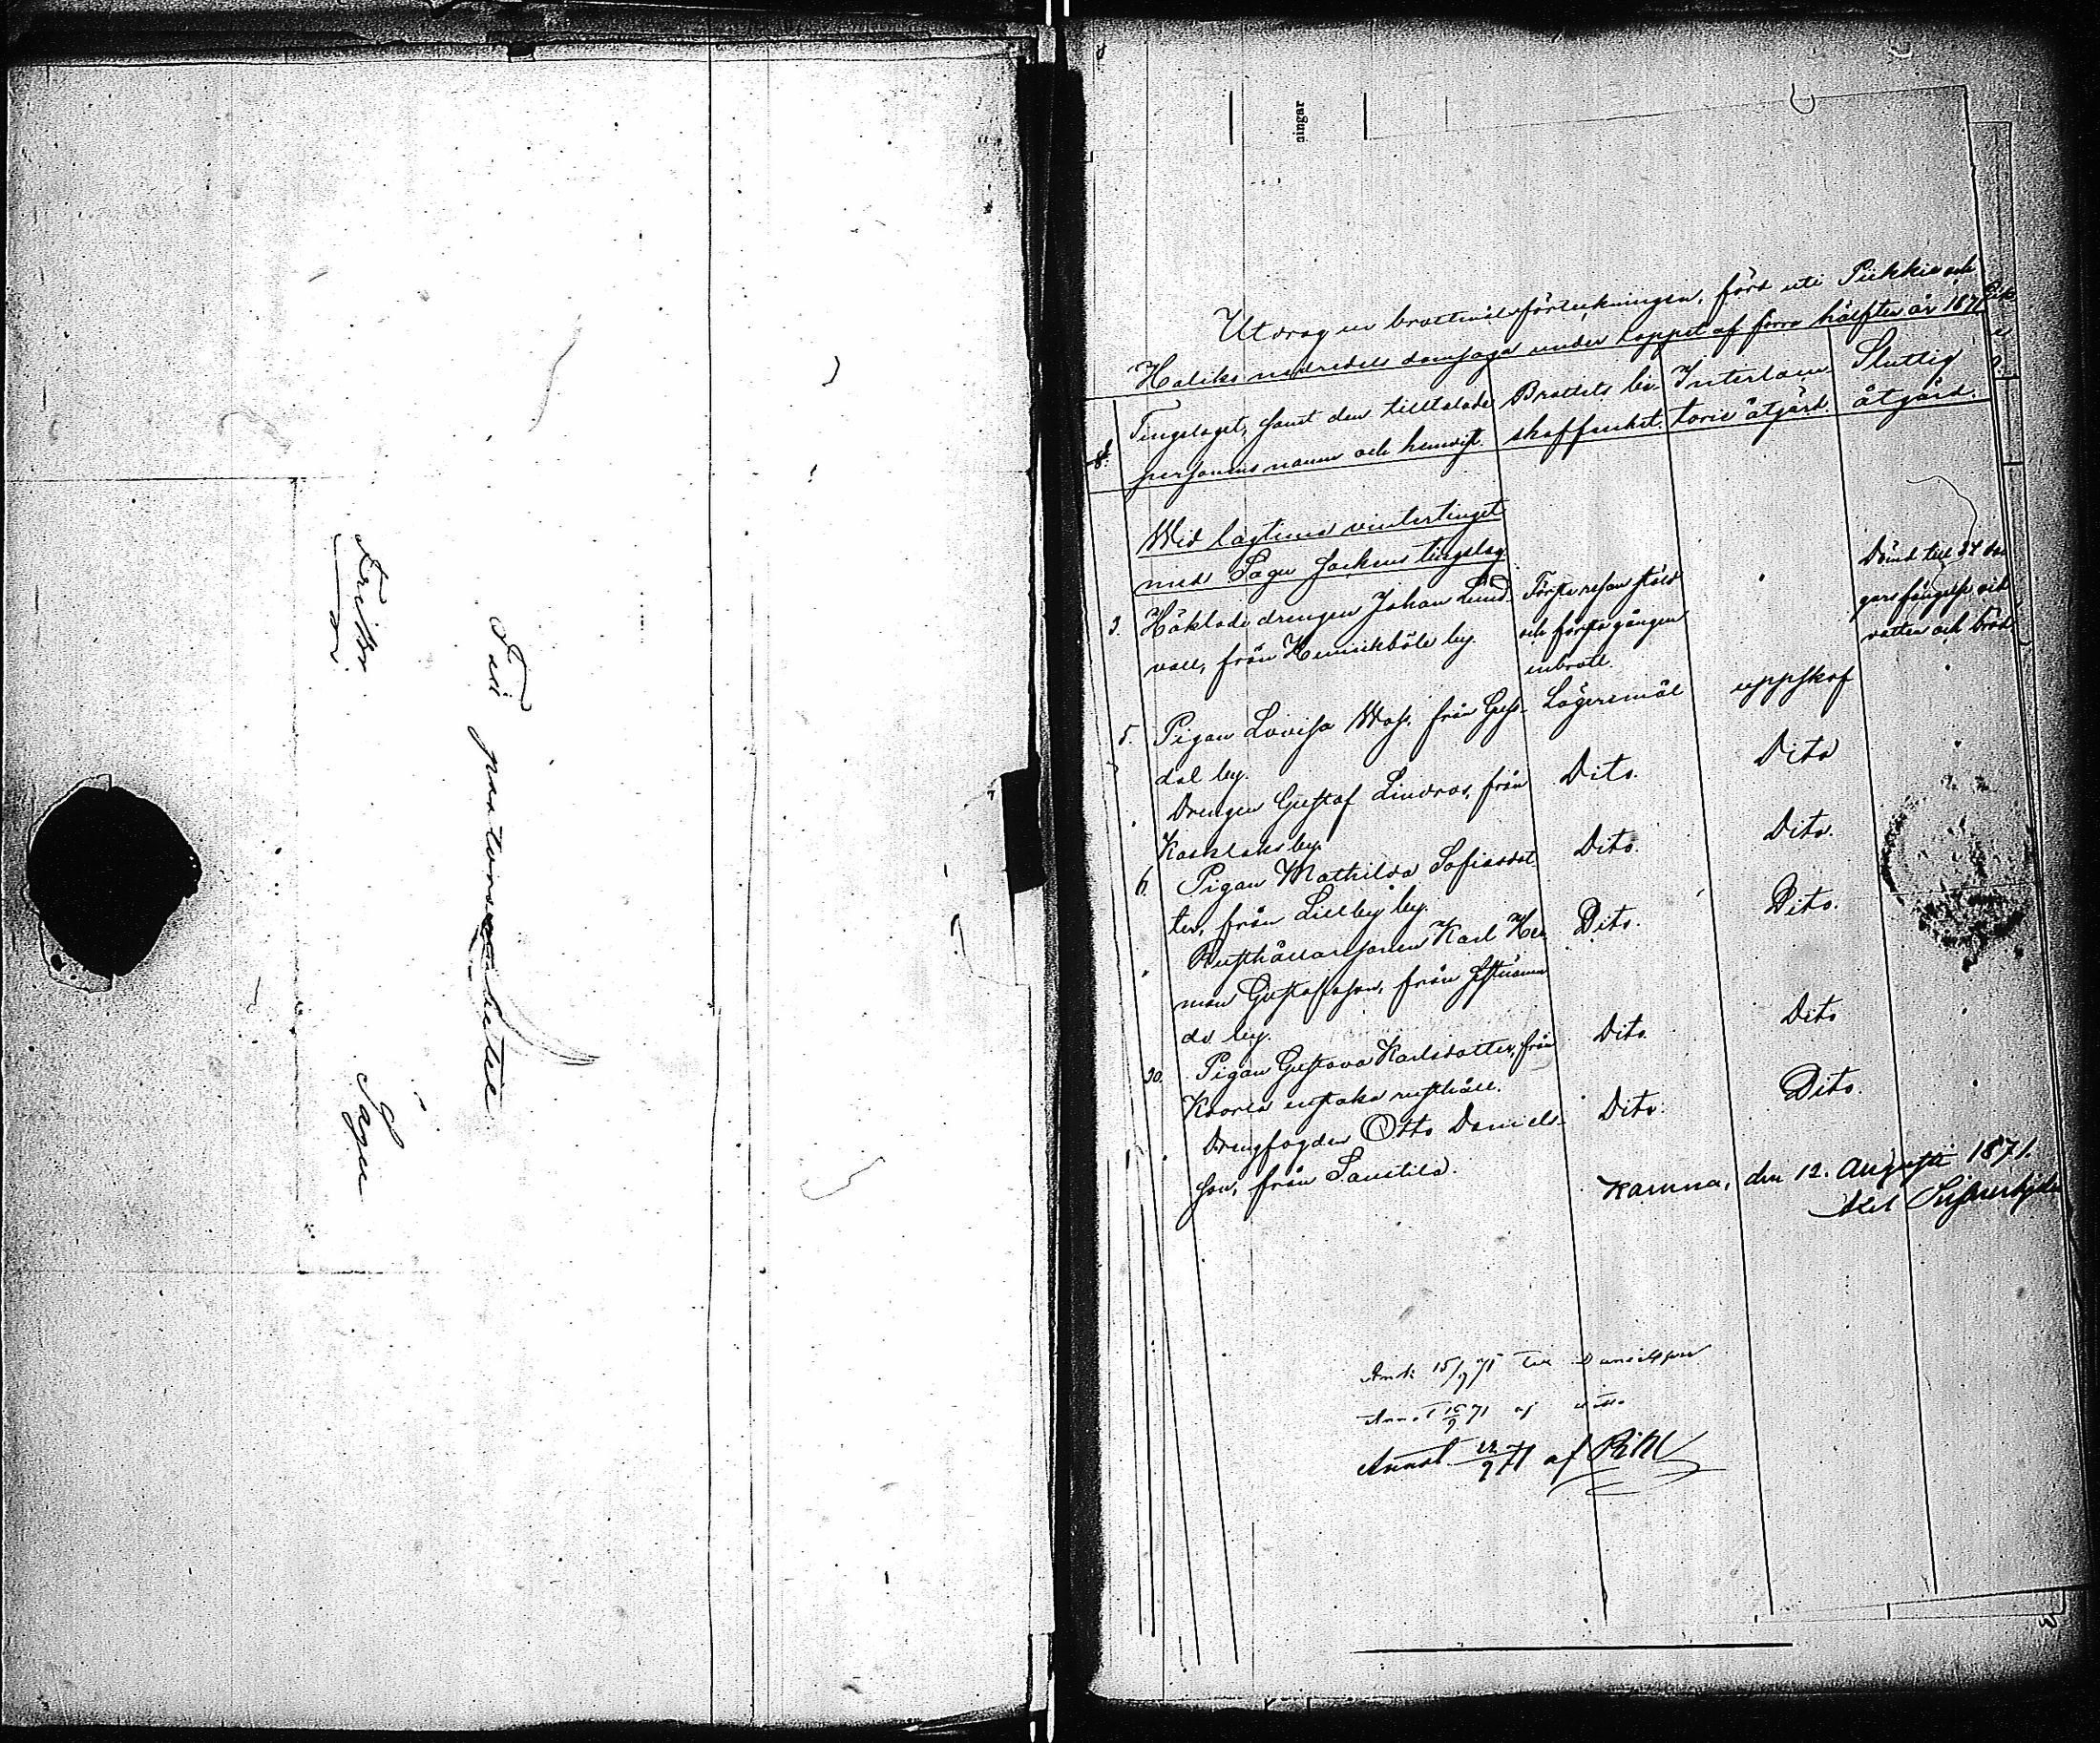 Till pastorsembetet
i
Sagu
Fribr.
ningar
Utdrag ur brottmålsförteckningen, förd uti Piikkis och
Halikko nedredels domsaga under loppet af förra hälften år 1871.
Tingslaget, samt den tilltalade
personens namn och hemvist.
Brottets be-
skaffenhet.
Interlocu-
torie åtgärd.
Slutlig
åtgärd.
Wid lagtima vintertinget
med Sagu sockens tingslag
3. Häktade drengen Johan Lind-
vall, från Hemmickböle by.
Första resan stöld
och första gången
inbrott.
Dömd till 24 da-
gars fängelse vid
vatten och bröd.
5. Pigan Lovisa from Gess-
dal by.
Lägersmål
uppskof
Drengen Gustaf Lindros, från
Kaskloks by.
Dito.
Dito
6. Pigan Mathilda Sofiasdot
ter, från Lillby by.
Dito.
Dito.
Rusthållaresonen Karl Her-
man Gustafsson, från
do by.
Dito.
Dito.
30. Pigan Gustava Karlsdotter, från
Koorla enstaka rusthåll.
Dito.
Dito
Drengfogden Otto Daniels-
son, från Sauttila.
Dito.
Dito.
Karuna, den 12. Augusti 1871.
Axel
15/9 71 till Danielsson
Annot 15/9 71 af
Annot. 22/9 71 af